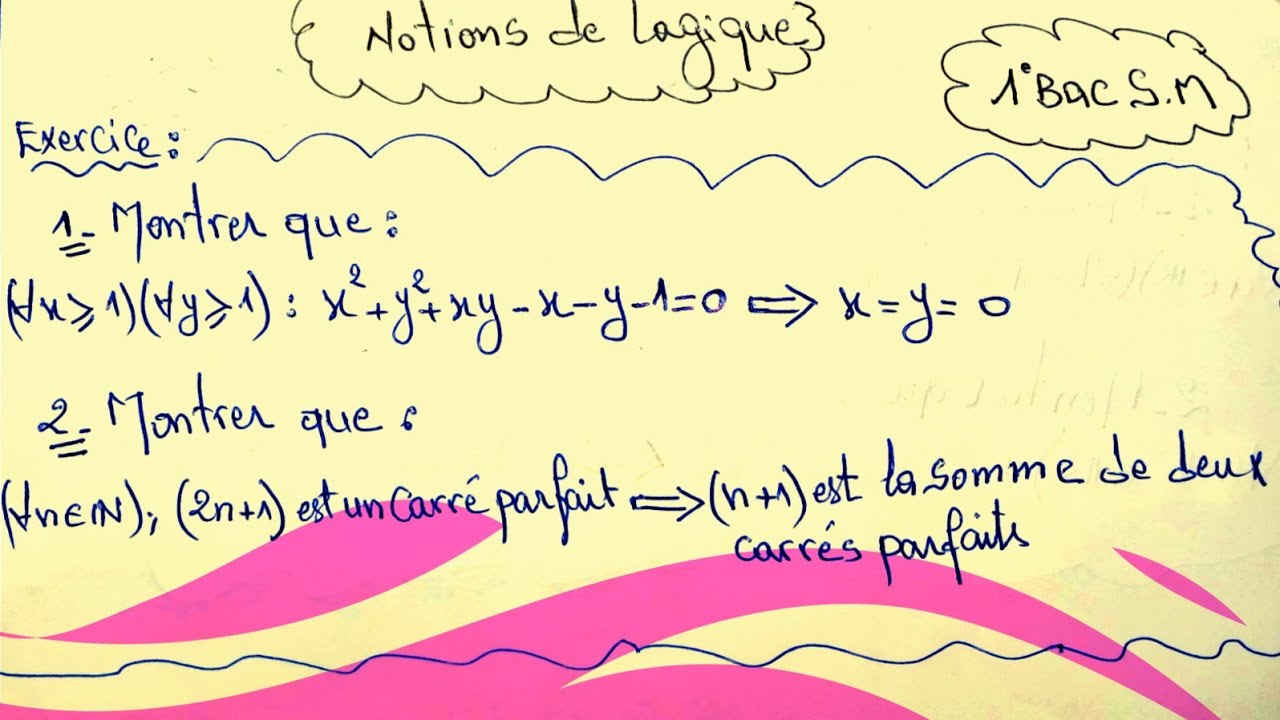 Notions de Logique
1e Bac S.M
Exercice :
1- Montrer que :
(∀x⩾1)(∀y⩾1) : x²+y²+xy-x-y-1=0 ⟹ x=y=0
2- Montrer que :
(∀n∈ℕ); (2n+1) est un carré parfait ⟹ (n+1) est la somme de deux
carrés parfaits